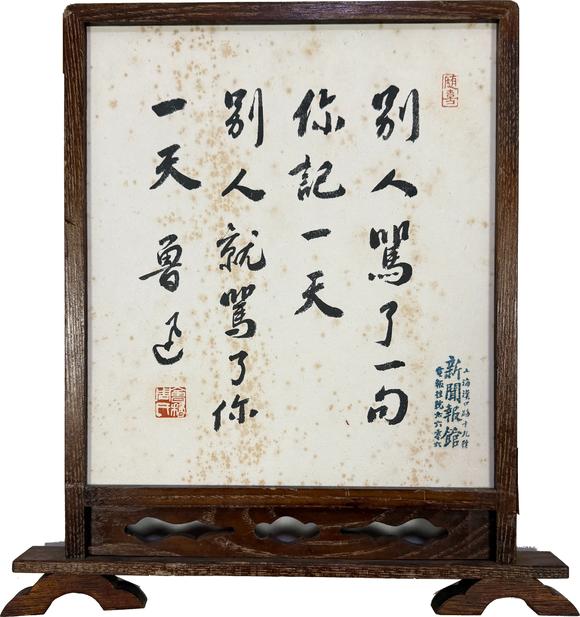 随喜
别人罵了一句
你記一天
别人就罵了你
一天 魯迅
會稽周氏
上海漢口路十九號
新聞報館